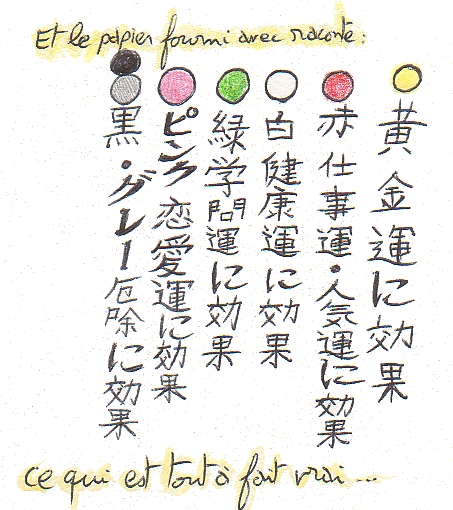 Et le papier fourni avec raconte :
黄 金運に効果
赤 仕事運・人気運に効果
白 健康運に効果
緑 学問運に効果
ピンク 恋愛運に効果
黒・グレー 厄除に効果
ce qui est tout à fait vrai...